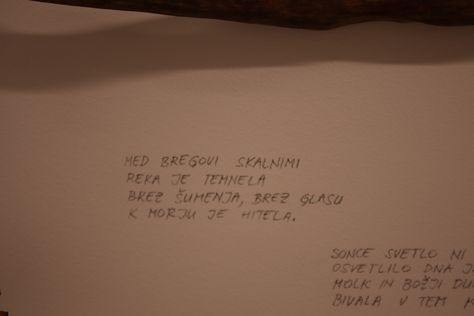 MED BREGOVI SKALNIMI
REKA JE TEMNELA
BREZ ŠUMENJA, BREZ GLASU
K MORJU JE HITELA.
SONCE SVETLO NI
OSVETLILO DNA
MOLK IN BOŽJI
BIVALA V TEM